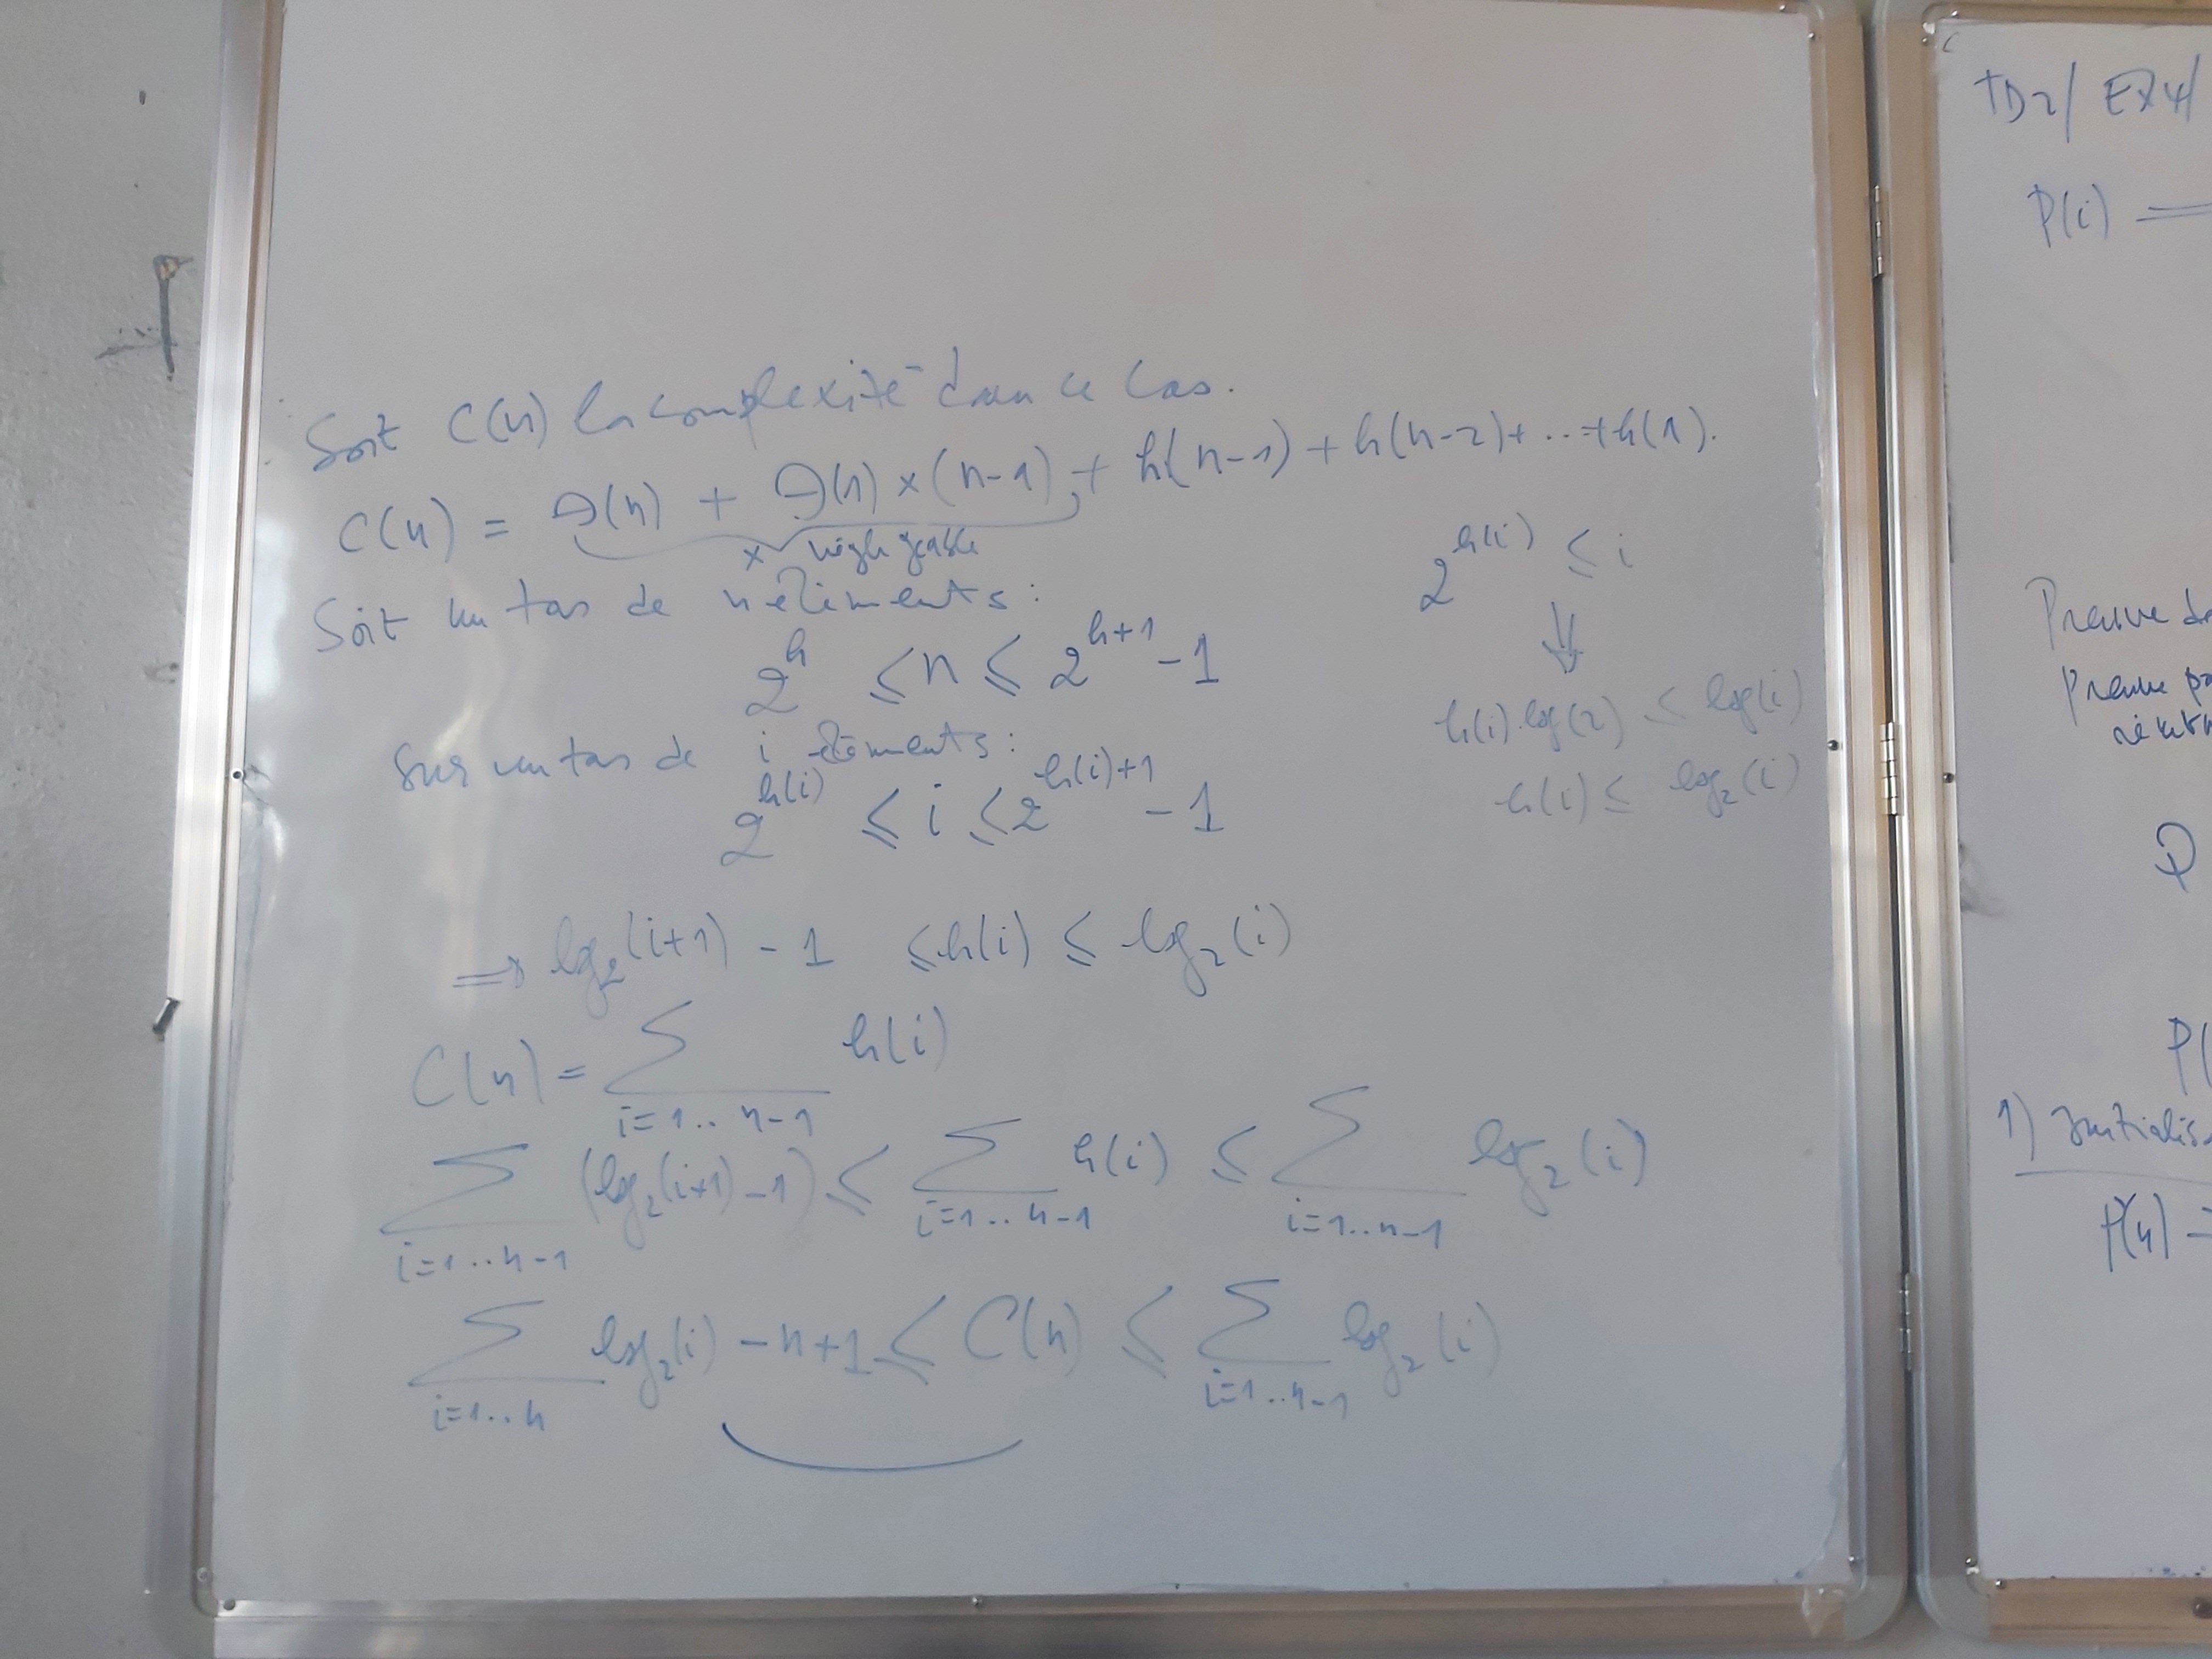 Soit C(n) la complexité dans ce cas.
C(n) = Θ(n) + Θ(1) × (n-1) + h(n-1) + h(n-2) + ... + h(1).
× négligeable
Soit un tas de n éléments :
2^h ≤ n ≤ 2^(h+1) - 1
Sur un tas de i éléments :
2^h(i) ≤ i ≤ 2^(h(i)+1) - 1
⇒ log₂(i+1) - 1 ≤ h(i) ≤ log₂(i)
C(n) = ∑ h(i)
i=1..n-1
∑ (log₂(i+1) - 1) ≤ ∑ h(i) ≤ ∑ log₂(i)
i=1..n-1 i=1..n-1 i=1..n-1
∑ log₂(i) - n+1 ≤ C(n) ≤ ∑ log₂(i)
i=1..n i=1..n-1
2^h(i) ≤ i
⇓
h(i).log(2) ≤ log(i)
h(i) ≤ log₂(i)
TD2/ EX4/
P(i) =
Preuve
Preuve
P(
1) Initialis
P(n)